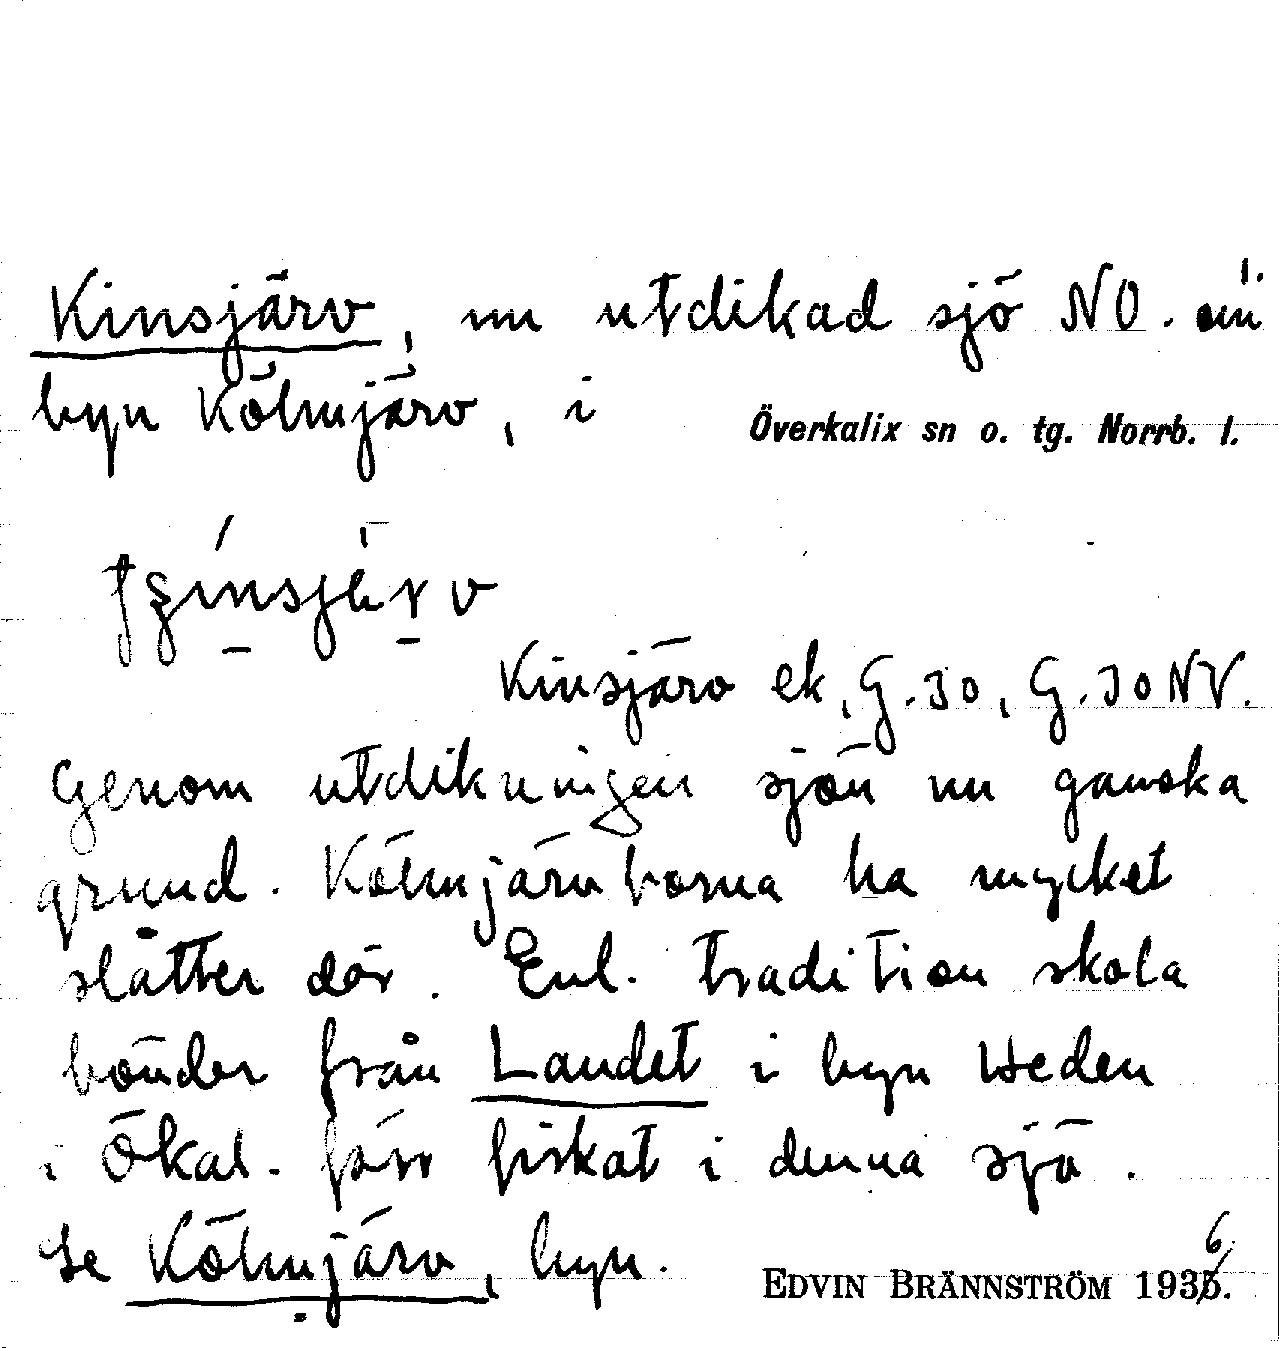 Kinsjärv, nu utdikad sjö NO. om
byn Kölmjärv, i Överkalix sn o. tg. Norrb. l.
Kinsjärv ek, G.30, G.30NV.
Genom utdikningen sjön nu ganska
grund. Kölmjärvborna ha mycket
slåtter där. Enl. tradition skola
bönder från Landet i byn Heden
i Ökal. förr fiskat i denna sjö.
Se Kölmjärv, byn.
EDVIN BRÄNNSTRÖM 1936.